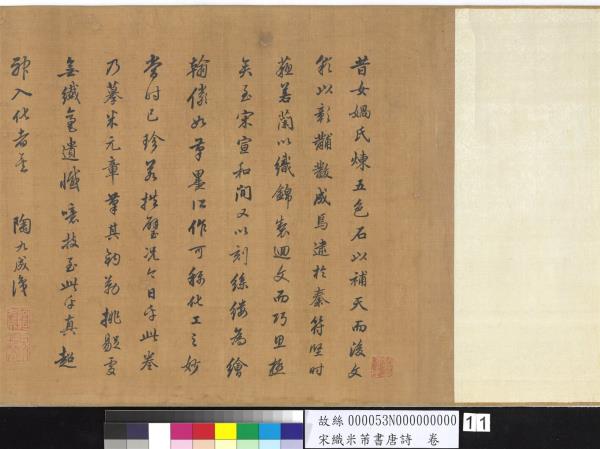 昔女媧氏煉五色石以補天而後文
彩以彰黼黻成焉逮於秦苻堅時
蘇若蘭以織錦製迴文而巧思極
矣至宋宣和間又以刻絲縷為繪
翰儼如筆墨所作可稱化工之妙
當時已珍若拱璧况今日乎此卷
乃摹米元章筆其鈎勒挑剔處
無纖毫遺憾噫技至此乎真超
神入化者矣 陶九成識
故絲 000053N000000000
宋織米芾書唐詩 卷
11